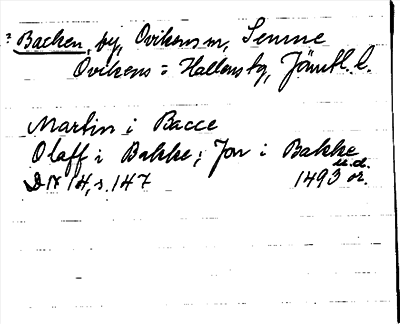 ? Backen, by, Ovikens m, Semne
Ovikens o Hallens tg, Jämtl. l.
Martin i Bacce
Olaff i Bakke; Jon i Bakke
u.d.
DN 14, s. 147 1493 or.